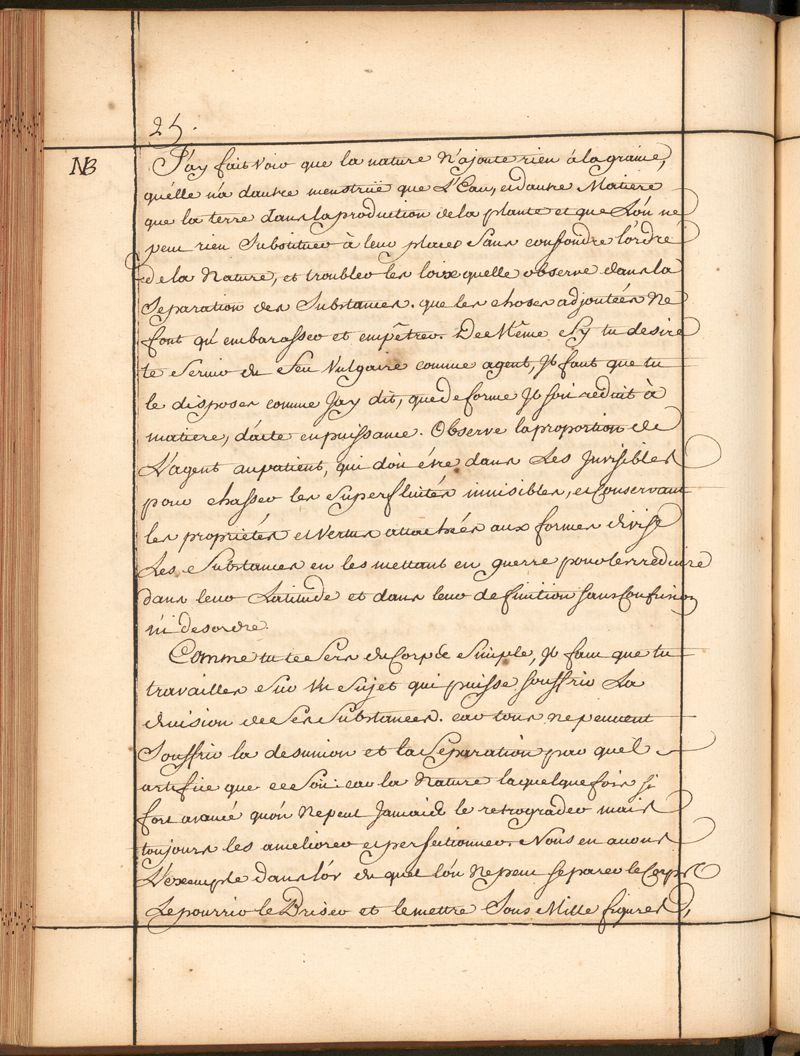 25.
NB
J'ay fait voir que la nature N'ajoute rien à la graine,
qu'elle n'a d'autre menstruë que L'Eau, et d'autre Matiere
que la terre dans la production de la plante et que L'on ne
peut rien Substituer à leur places Sans confondre l'ordre
de la Nature, et troubler les loix quelle observe dans la
Separation des Substances. que les choses adjoutées Ne
font qu'embarasser et empêtrer. De Même Sy tu desire
te Servir du feu Vulgaire comme agent, Jl faut que tu
le disposes comme Jay dit, que de forme Jl soit reduit à
matiere, d'acte en puissance. Observe la proportion de
L'agent au patient, qui doit être dans Les Jnvisibles
pour chasser les Superfluités invisibles, et Conservant
les proprietés et Vertus attachées aux formes divise
Les Substances en les mettant en guerre pour les reduire
dans leur Latitude et dans leur definition sans Confusion
ni desordre.
Comme tu te Sers du Corps Simple, Jl faut que tu
travailles Sur Un Sujet qui puisse souffrir La
division de Ses Substances. car tous ne peuvent
Souffrir la desunion et la Separation par quel
artifice que ce Soit. car la Nature la quelque fois si
fort avancé qu'on Ne peut Jamais le retrograder mais
toujours les ameliorer et perfectionner. Nous en avons
L'exemple dans l'or du quel l'on Ne peut separer le Corps
Le pourrir le Briser et le mettre Sous Mille figures,